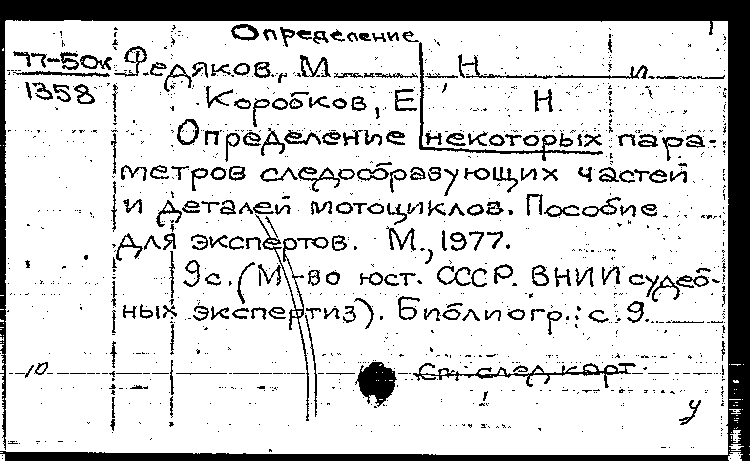 Определение
77-50к Федяков, М. Н. и
1358 Коробков, Е. Н.
Определение некоторых пара-
метров следообразующих частей
и деталей мотоциклов. Пособие
для экспертов. М., 1977.
9с. (М-во юст. СССР. ВНИИ судеб-
ных экспертиз). Библиогр.: с. 9.
10
См след. карт.
у